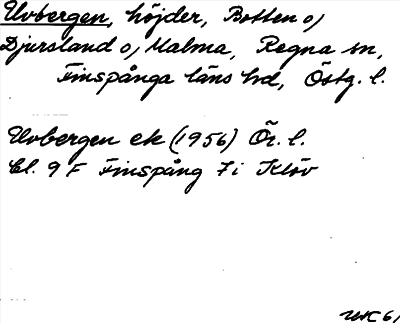 Uvbergen, höjder, Botten o/
Djursland o, Malma, Regna sn,
Finspånga läns hd, Östg. l.
Uvbergen ek (1956) Ör. l.
Bl. 9 F Finspång 7i Klöv
UK 61